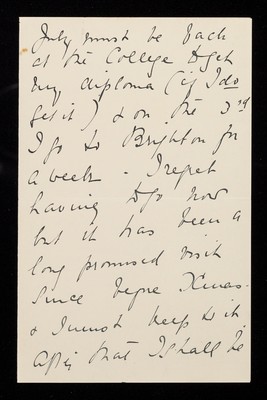 July must be back
at the College to get
my diploma (if I do
get it) & on the 3rd
I go to Brighton for
a week - I regret
having to go now
but it has been a
long promised visit
since before Xmas.
& I must keep to it
After that I shall be